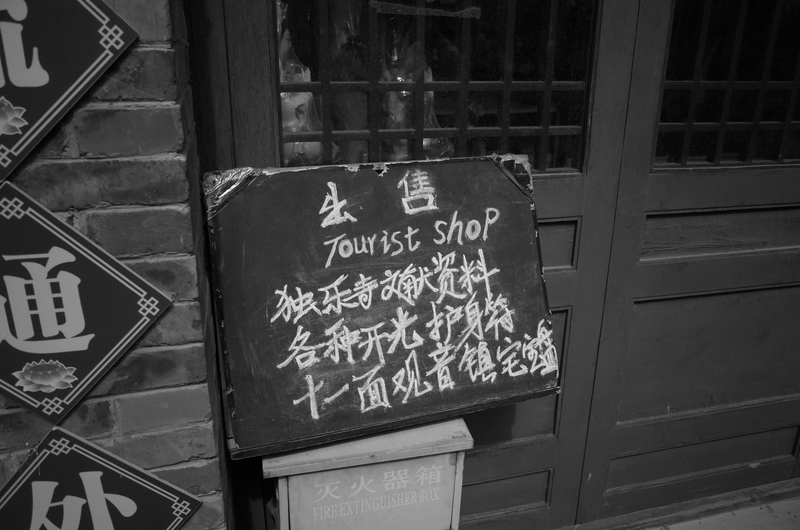 通
处
出 售
Tourist shop
独乐寺文献资料
各种开光护身符
十一面观音镇宅宝盘
灭火器箱
FIRE EXTINGUISHER BOX